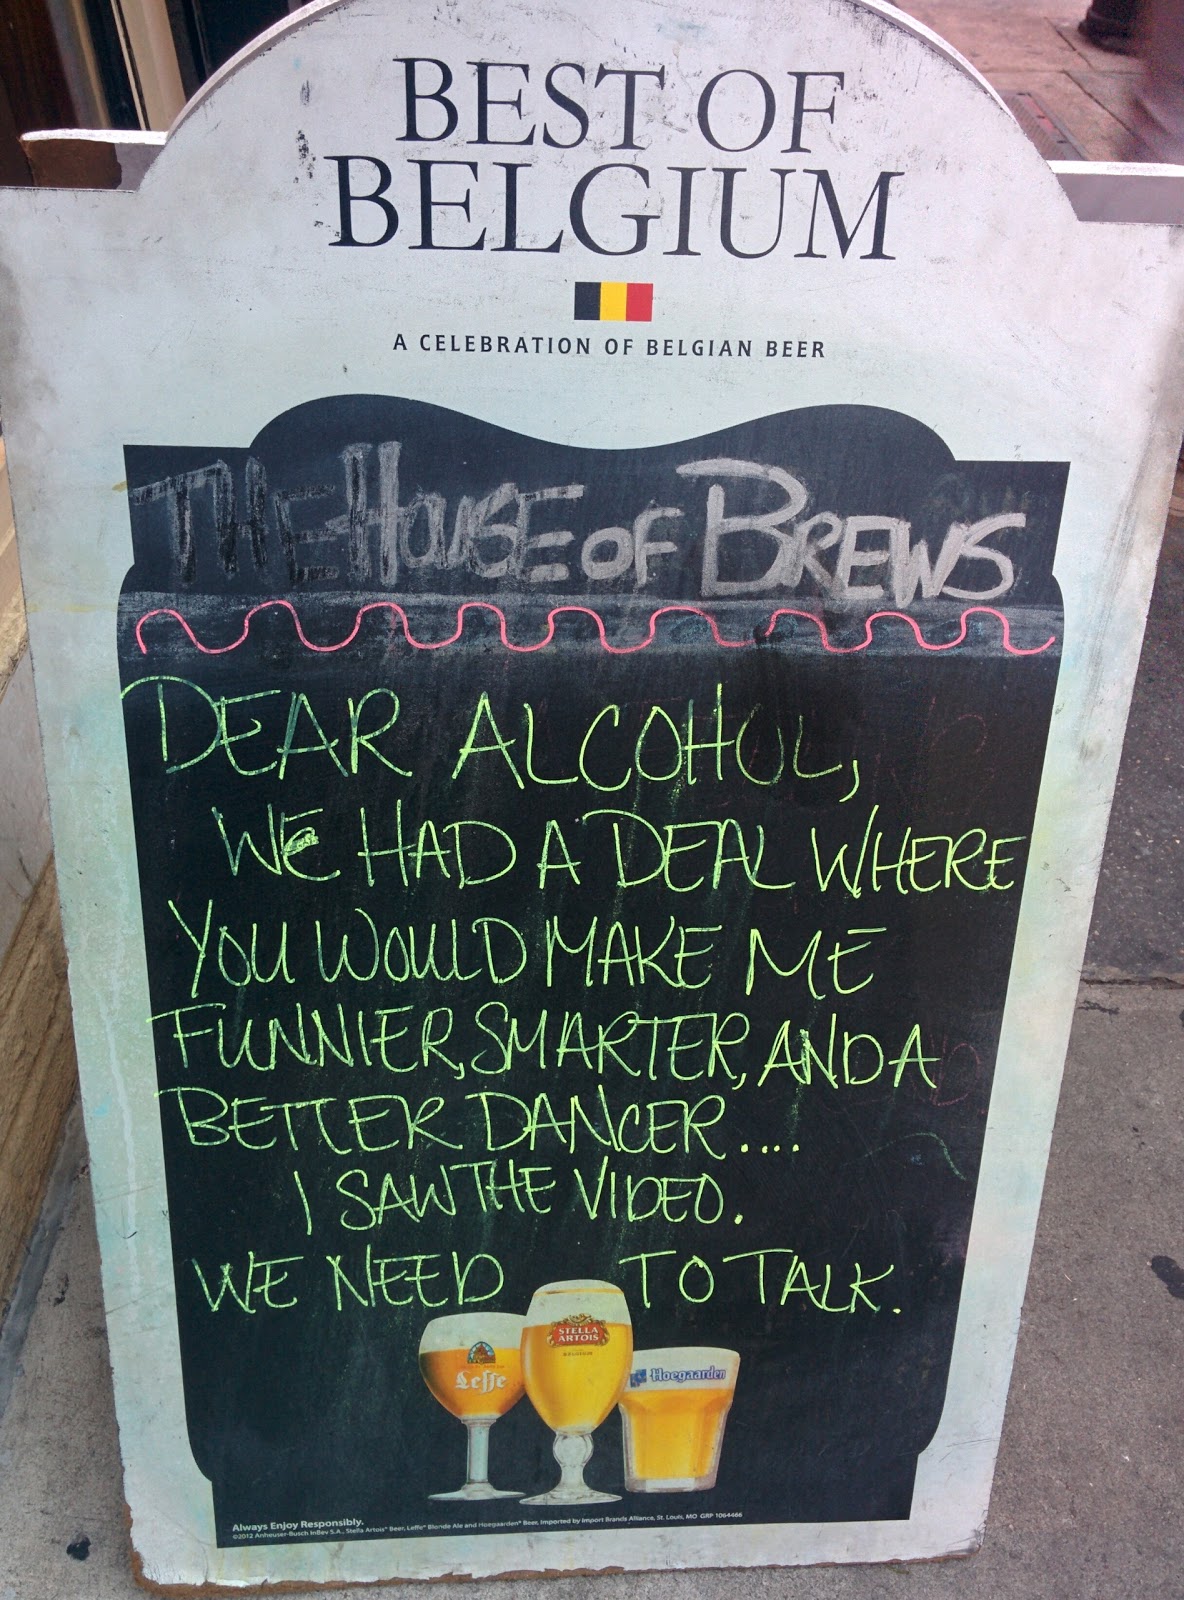 BEST OF
BELGIUM
A CELEBRATION OF BELGIAN BEER
THE HOUSE OF BREWS
DEAR ALCOHOL,
WE HAD A DEAL WHERE
YOU WOULD MAKE ME
FUNNIER, SMARTER, AND A
BETTER DANCER....
I SAW THE VIDEO.
WE NEED TO TALK.
Leffe
STELLA
ARTOIS
BELGIUM
Hoegaarden
Always Enjoy Responsibly.
©2012 Anheuser-Busch InBev S.A., Stella Artois® Beer, Leffe® Blonde Ale and Hoegaarden® Beer, Imported by Import Brands Alliance, St. Louis, MO GRP 1064466